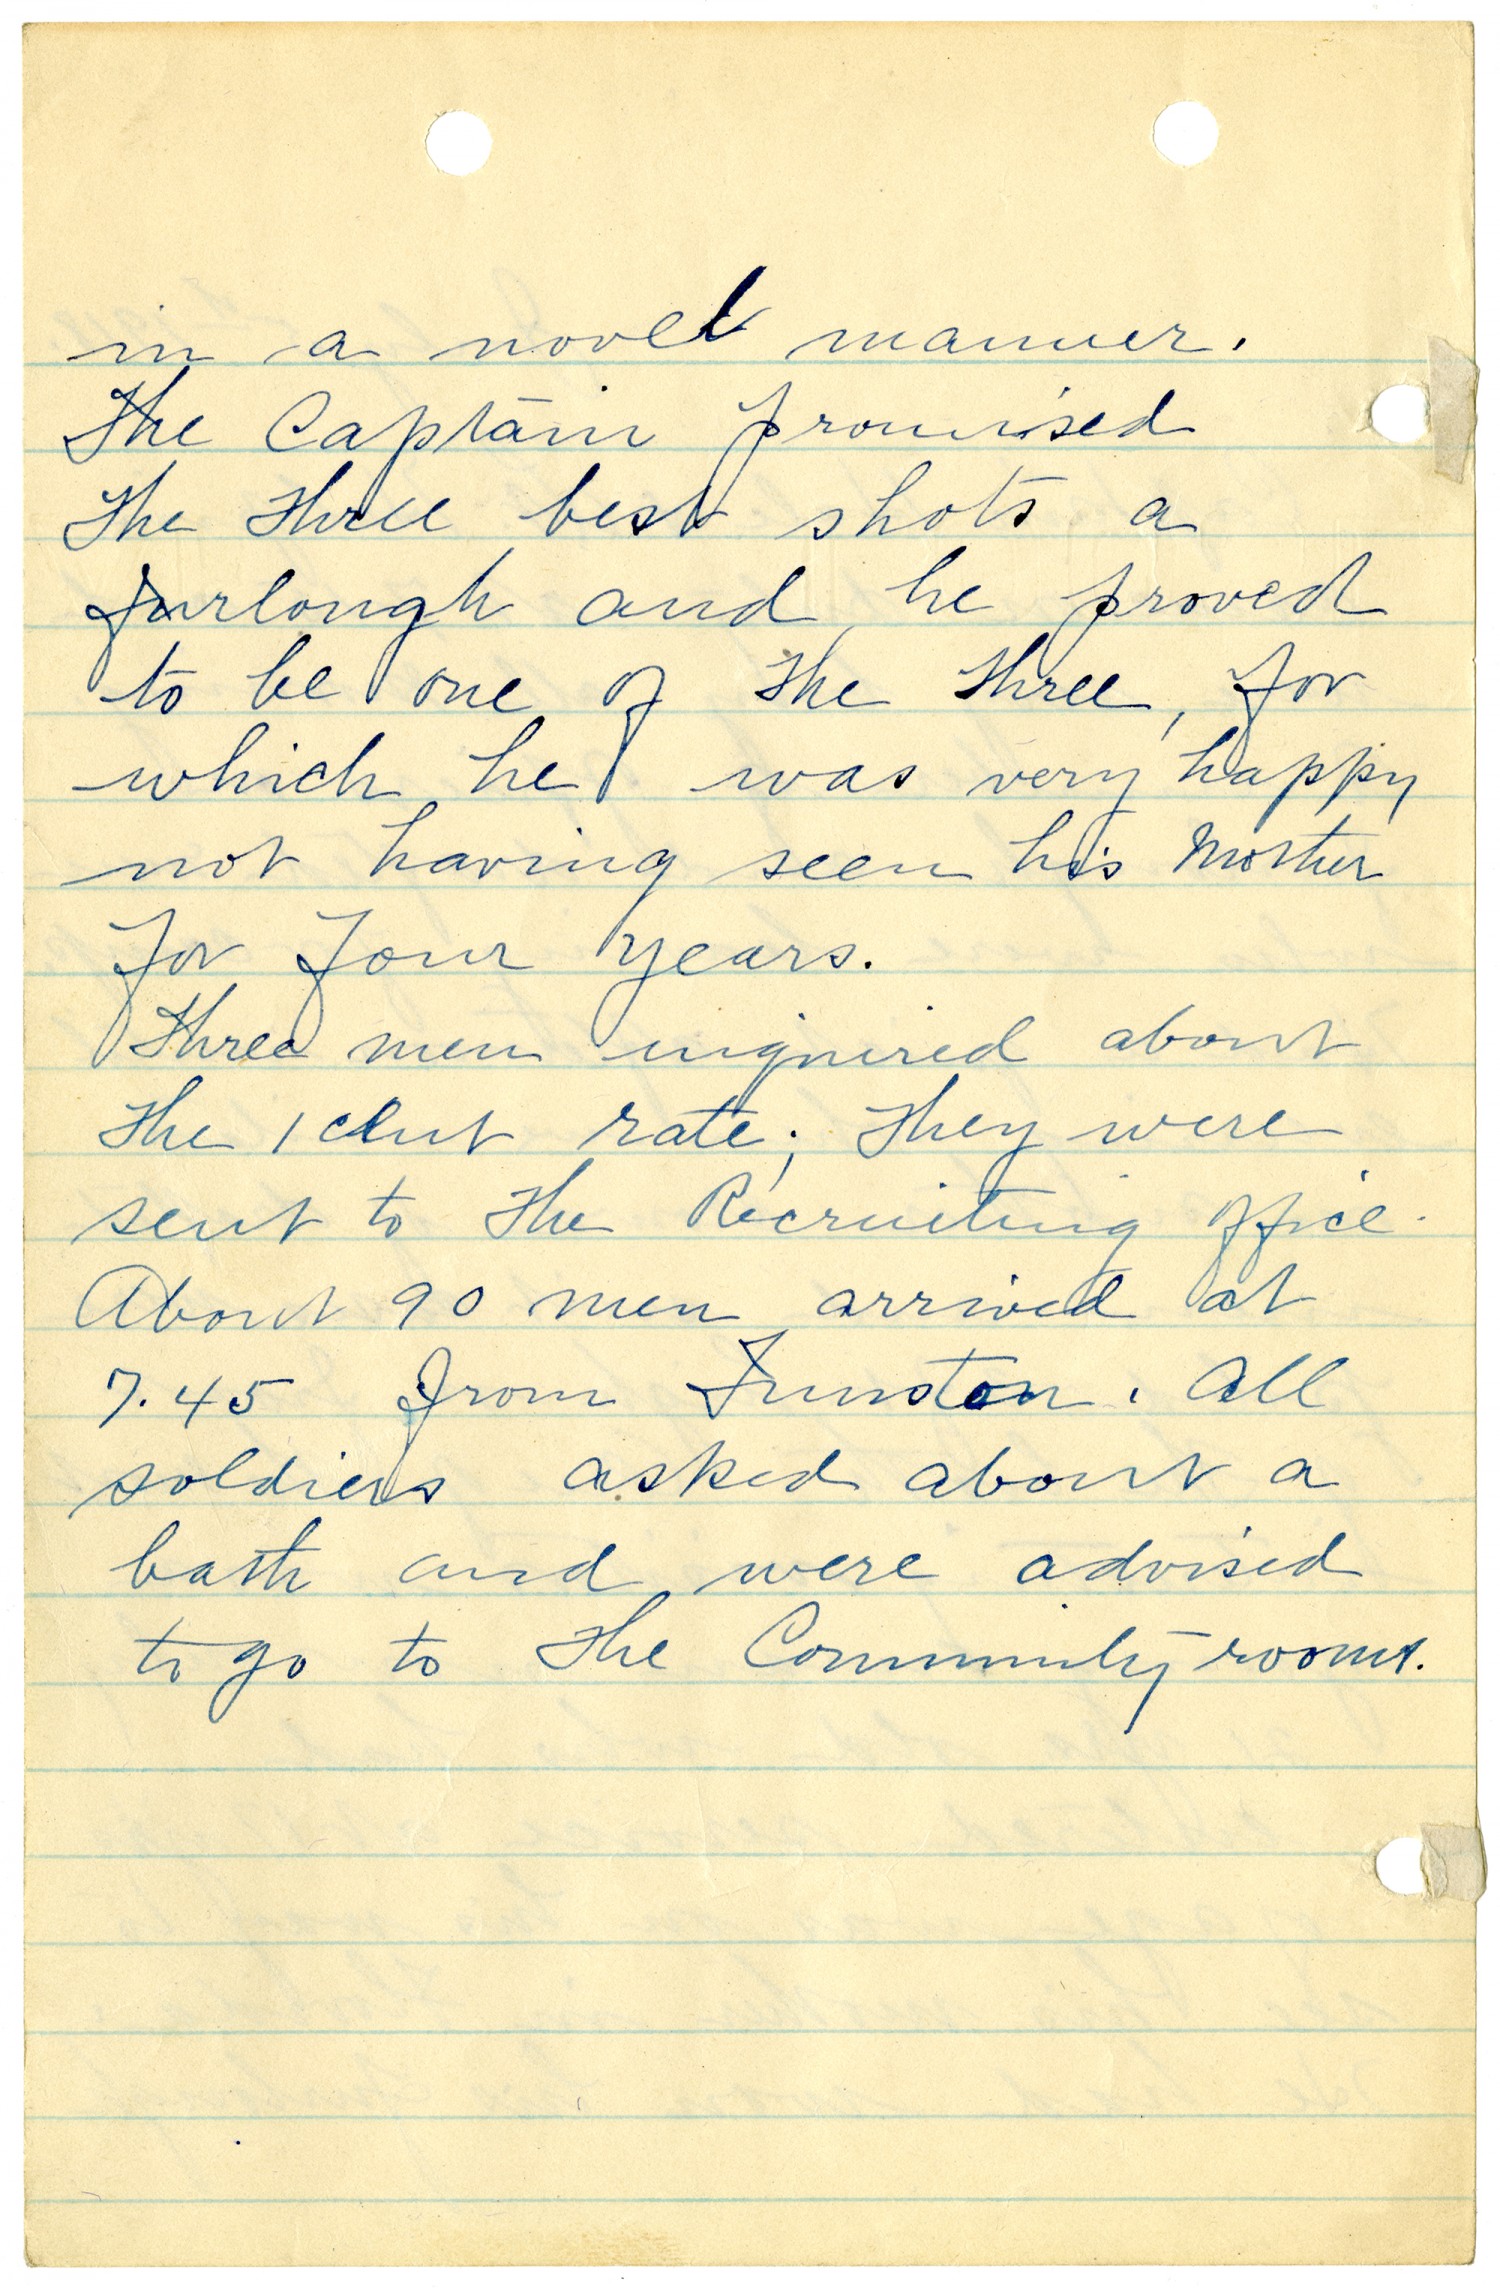 in a novel manner.
The Captain promised
the three best shots a
furlough and he proved
to be one of the three, for
which he was very happy
not having seen his Mother
for four years.
Three men inquired about
the 1 cent rate; they were
sent to the Recruiting office.
About 90 men arrived at
7.45 from Funston. All
soldiers asked about a
bath and were advised
to go to the Community rooms.